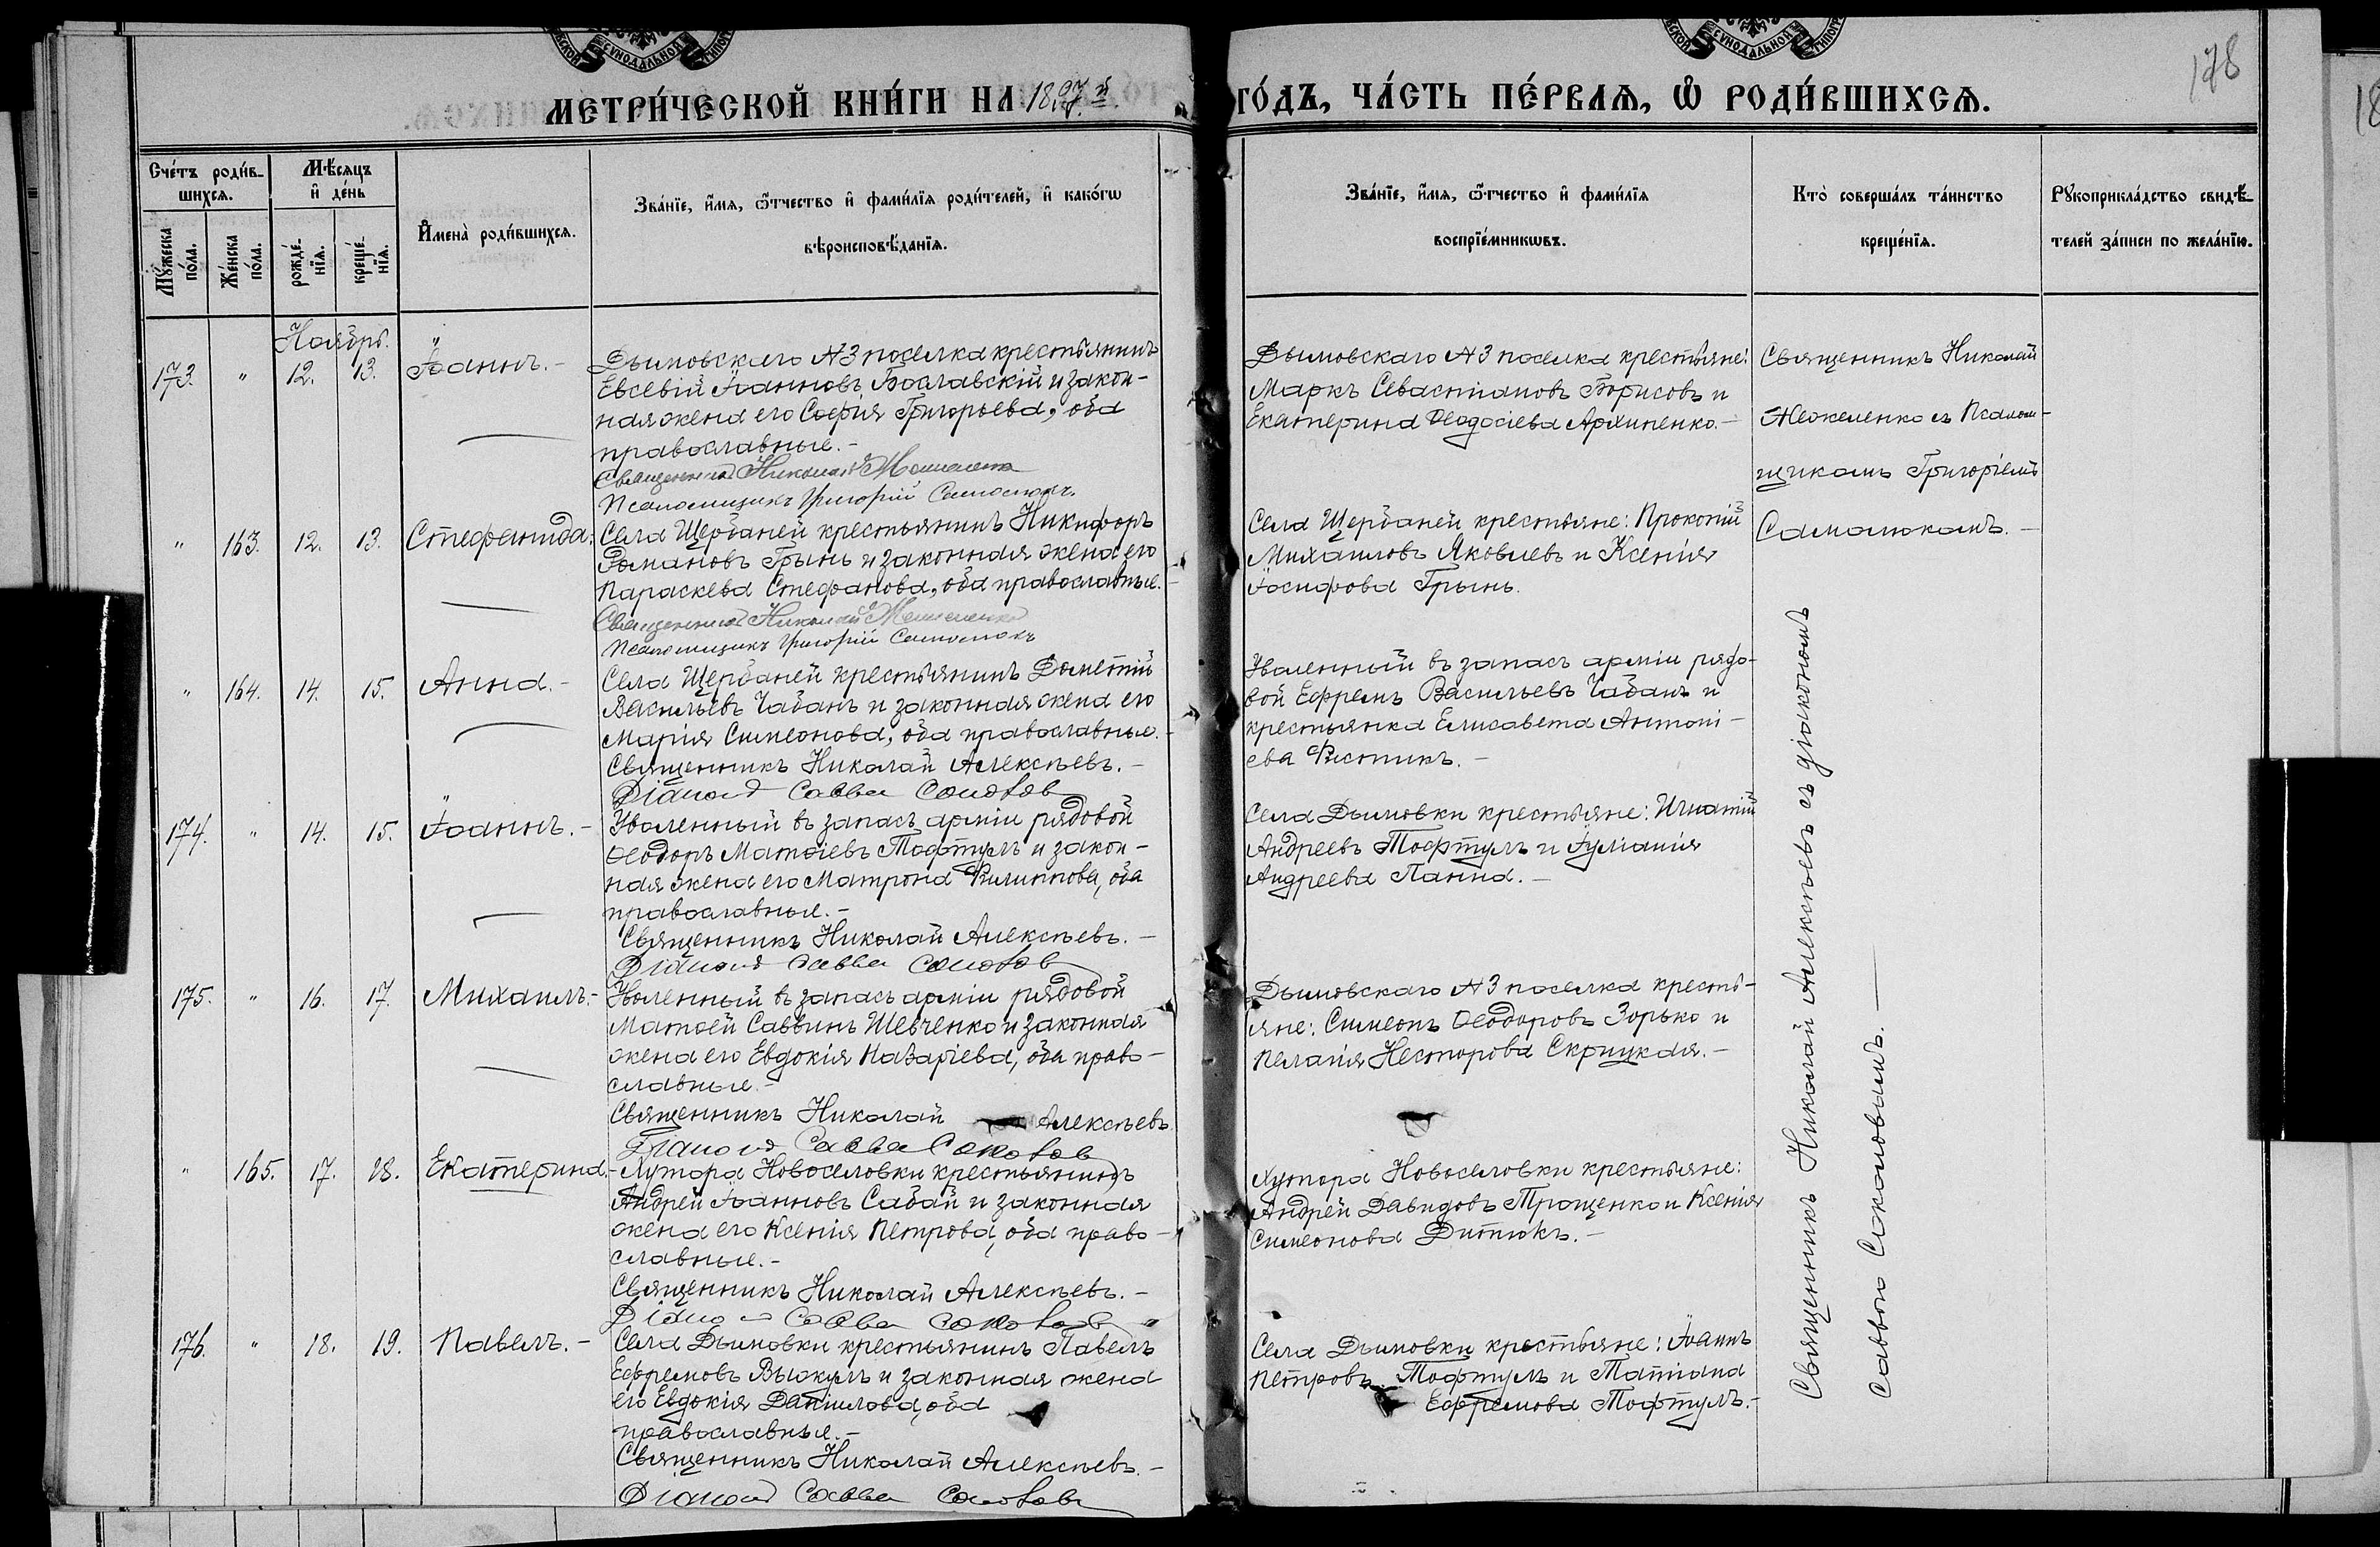 178
МЕТРИ́ЧЕСКОЙ КНИ́ГИ НА 1897й. ГО́ДЪ, ЧА́СТЬ ПЕ́РВАѦ, Ѡ҆ РОДИ́ВШИХСѦ.
Сче́тъ роди́в-
шихсѧ.
Мѣ́сѧцъ
и҆ де́нь
Мꙋ́жеска
по́ла.
Же́нска
по́ла.
рожде́-
нїѧ.
креще́-
нїѧ.
И҆мена̀ роди́вшихсѧ.
Зва́нїе, и҆́мѧ, ѻ҆́тчество и҆ фами́лїѧ роди́телей, и҆ како́гѡ
вѣроисповѣ́данїѧ.
Зва́нїе, и҆́мѧ, ѻ҆́тчество и҆ фами́лїѧ
воспрїе́мникѡвъ.
Кто̀ соверша́лъ та́инство
креще́нїѧ.
Рꙋкоприкла́дство свидѣ́-
телей за́писи по жела́нїю.
Ноябрь.
173. " 12. 13. Іоаннъ.-
Дымовскаго №3 поселка крестьянинъ
Евсевій Іоанновъ Бославскій и закон-
ная жена его Софія Григорьева, оба
православные.-
Священникъ Николай
Псаломщикъ Григорій Самолюкъ.
Дымовскаго №3 поселка крестьяне:
Маркъ Севастіановъ Борисовъ и
Екатерина Ѳеодосіева Архипенко.-
Священникъ Николай
съ Псалом-
щикомъ Григоріемъ
Самолюкомъ.-
" 163. 12. 13. Стефанида.
Села Щербаней крестьянинъ Никифоръ
Романовъ Грынь и законная жена его
Параскева Стефанова, оба православные.-
Священникъ Николай
Псаломщикъ Григорій Самолюкъ
Села Щербаней крестьяне: Прокопій
Михаиловъ Яковлевъ и Ксенія
Іосифова Грынь.
" 164. 14. 15. Анна.-
Села Щербаней крестьянинъ Дометій
Васильевъ Чабанъ и законная жена его
Марія Симеонова, оба православные.-
Священникъ Николай Алексѣевъ.-
Діаконъ Савва Соколовъ
Уволенный въ запасъ арміи рядо-
вой Ефремъ Васильевъ Чабанъ и
крестьянка Елисавета Антоні-
ева Фистикъ.-
174. " 14. 15. Іоаннъ.-
Уволенный въ запасъ арміи рядовой
Ѳеодоръ Матѳіевъ Тофтулъ и закон-
ная жена его Матрона Филиппова, оба
православные.-
Священникъ Николай Алексѣевъ.-
Діаконъ Савва Соколовъ
Села Дымовки крестьяне: Игнатій
Андреевъ Тофтулъ и Іуліанія
Андреева Панна.-
175. " 16. 17. Михаилъ.-
Уволенный въ запасъ арміи рядовой
Матѳей Саввинъ Шевченко и законная
жена его Евдокія Назаріева, оба право-
славные.-
Священникъ Николай Алексѣевъ
Діаконъ Савва Соколовъ
Дымовскаго №3 поселка кресть-
яне: Симеонъ Ѳеодоровъ Зорько и
Пелагія Несторова Скрицкая.-
" 165. 17. 28. Екатерина.-
Хутора Новоселовки крестьянинъ
Андрей Іоанновъ Сабай и законная
жена его Ксенія Петрова, оба право-
славные.-
Священникъ Николай Алексѣевъ.-
Діаконъ Савва Соколовъ
Хутора Новоселовки крестьяне:
Андрей Давидовъ Трощенко и Ксенія
Симеонова Дитюкъ.-
176. " 18. 19. Павелъ.-
Села Дымовки крестьянинъ Павелъ
Ефремовъ и законная жена
его Евдокія Даніилова, оба
православные.-
Священникъ Николай Алексѣевъ.-
Діаконъ Савва Соколовъ
Села Дымовки крестьяне: Іоаннъ
Петровъ Тофтулъ и Татіана
Ефремова Тофтулъ.-
Священникъ Николай Алексѣевъ съ діакономъ
Саввою Соколовымъ.-